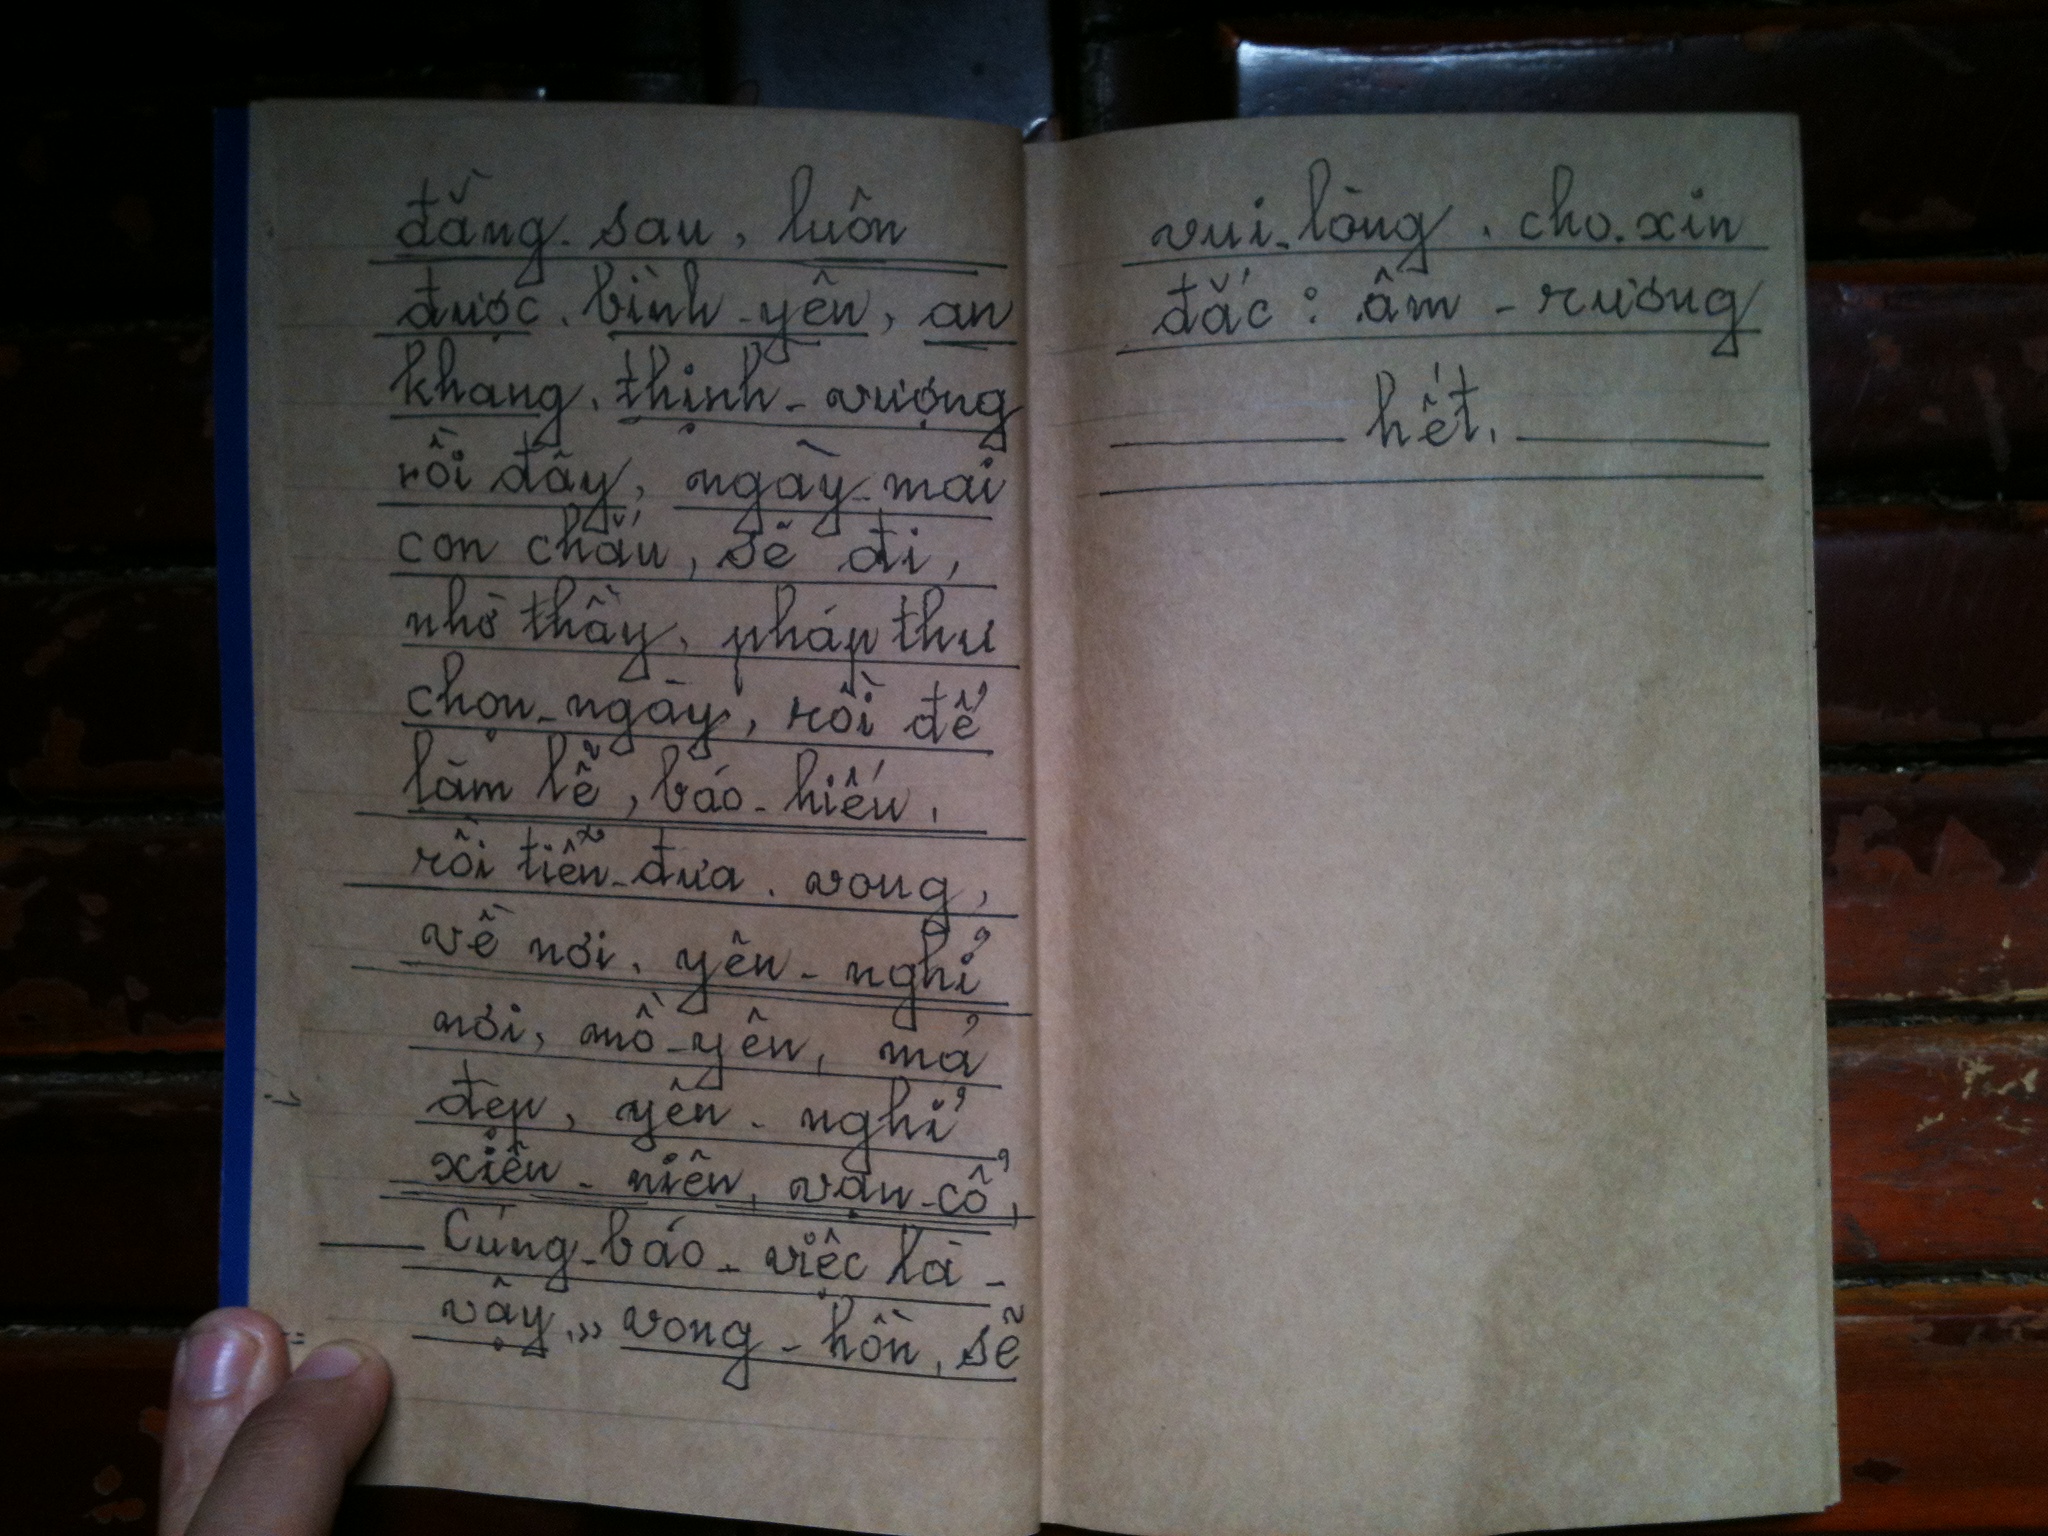 đằng sau, luôn
được. bình - yên, an
khang. thịnh - vượng
rồi đây, ngày - mai
con cháu, sẽ đi,
nhờ thầy, pháp thư
chọn - ngày, rồi để
làm lễ, báo - hiếu,
rồi tiễn - đưa. vong,
về nơi, yên - nghỉ
nơi, mồ - yên, mả
đẹp, yên - nghỉ
xiên - niên, vạn - cổ,
Cúng - báo - việc là -
vậy,,» vong - hồn, sẽ
vui - lòng. cho. xin
đắc: âm - rương
hết.